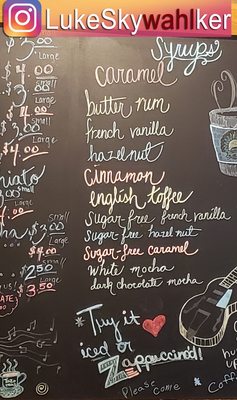 LukeSkywahlker
$3.00
Large
Syrups
$4.00
caramel
small
$3.00
Large
butter rum
$4.00
french vanilla
small
$3.00
Large
hazelnut
$4.00
cinnamon
small
$3.00
english toffee
Large
$4.00
Sugar-free french vanilla
small
$3.00
Sugar-free hazel nut
Large
$4.00
Sugar-free caramel
small
$2.50
White mocha
Large
$3.50
dark chocolate mocha
Try it
iced or
Zappuccino'd!
Please come